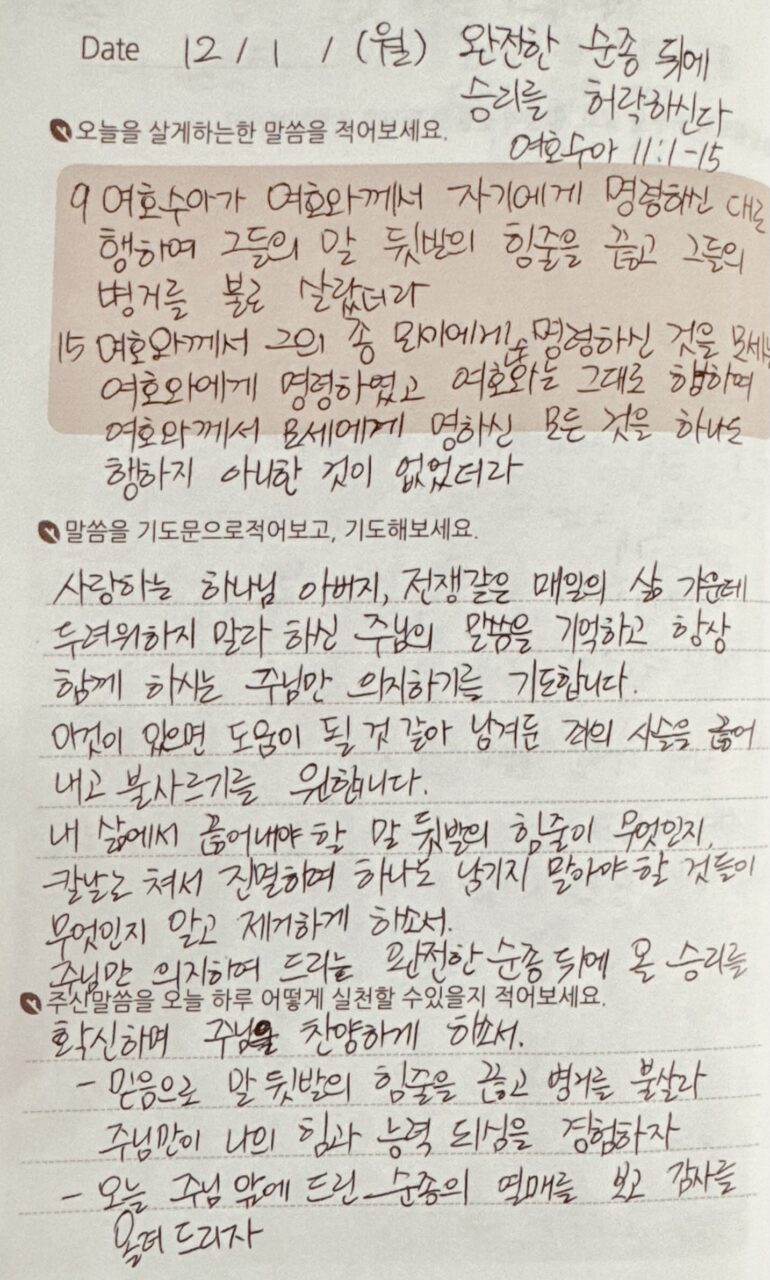 Date 12 / 1 / (월) 완전한 순종 뒤에
승리를 허락하신다
여호수아 11:1-15
오늘을 살게하는한 말씀을 적어보세요.
9 여호수아가 여호와께서 자기에게 명령하신 대로
행하여 그들의 말 뒷발의 힘줄을 끊고 그들의
병거를 불로 살랐더라
15 여호와께서 그의 종 명령하신 것을 모세는
여호와에게 명령하였고 여호와는 그대로 행하여
여호와께서 모세에게 명하신 모든 것을 하나도
행하지 아니한 것이 없었더라
말씀을 기도문으로적어보고, 기도해보세요.
사랑하는 하나님 아버지, 전쟁같은 매일의 삶 가운데
두려워하지 말라 하신 주님의 말씀을 기억하고 항상
함께 하시는 주님만 의지하기를 기도합니다.
이것이 있으면 도움이 될 것 같아 남겨둔 죄의 사슬을 끊어
내고 불사르기를 원합니다.
내 삶에서 끊어내야 할 말 뒷발의 힘줄이 무엇인지,
칼날로 쳐서 진멸하여 하나도 남기지 말아야 할 것들이
무엇인지 알고 제거하게 하소서.
주님만 의지하며 드리는 완전한 순종 뒤에 올 승리를
주신말씀을 오늘 하루 어떻게 실천할 수있을지 적어보세요.
확신하며 주님을 찬양하게 하소서.
- 믿음으로 말 뒷발의 힘줄을 끊고 병거를 불살라
주님만이 나의 힘과 능력 되심을 경험하자
- 오늘 주님 앞에 드린 순종의 열매를 보고 감사를
올려 드리자